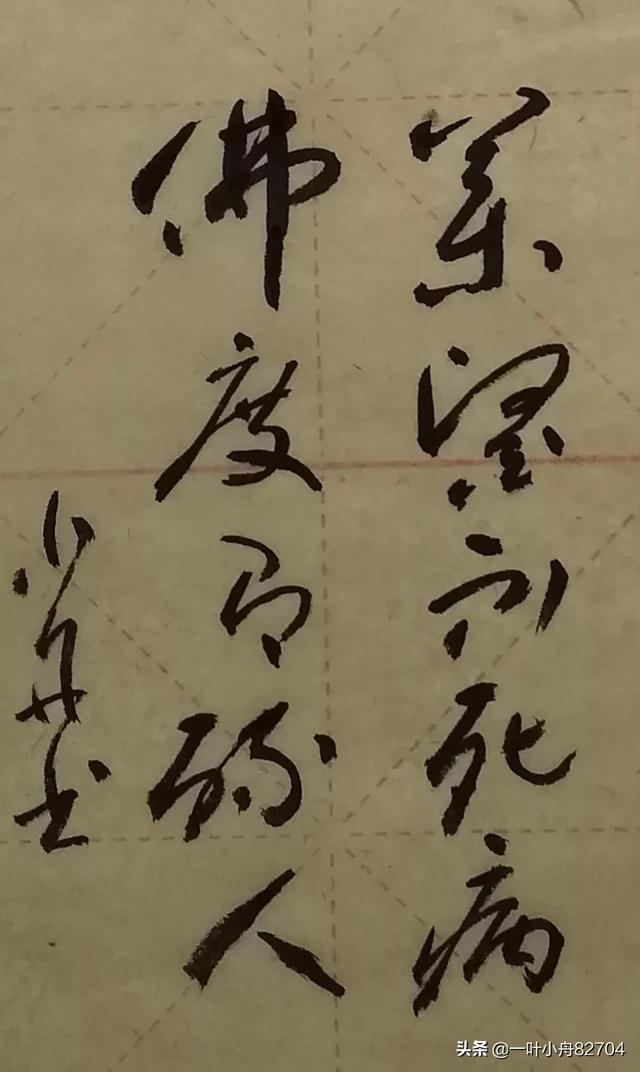 藥醫不死病
佛度有緣人
小舟书
头条 @一叶小舟82704